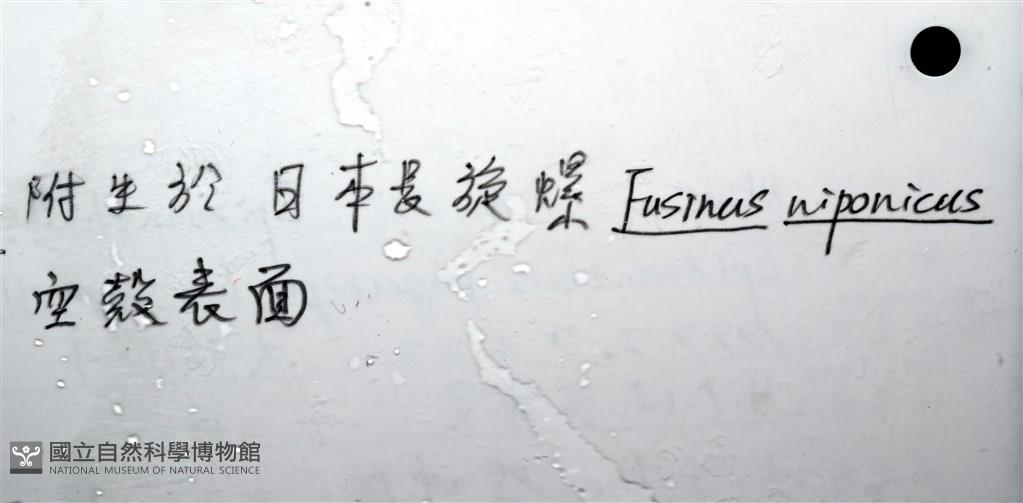 附生於 日本長旋螺 Fusinus niponicus
空殼表面
國立自然科學博物館
NATIONAL MUSEUM OF NATURAL SCIENCE